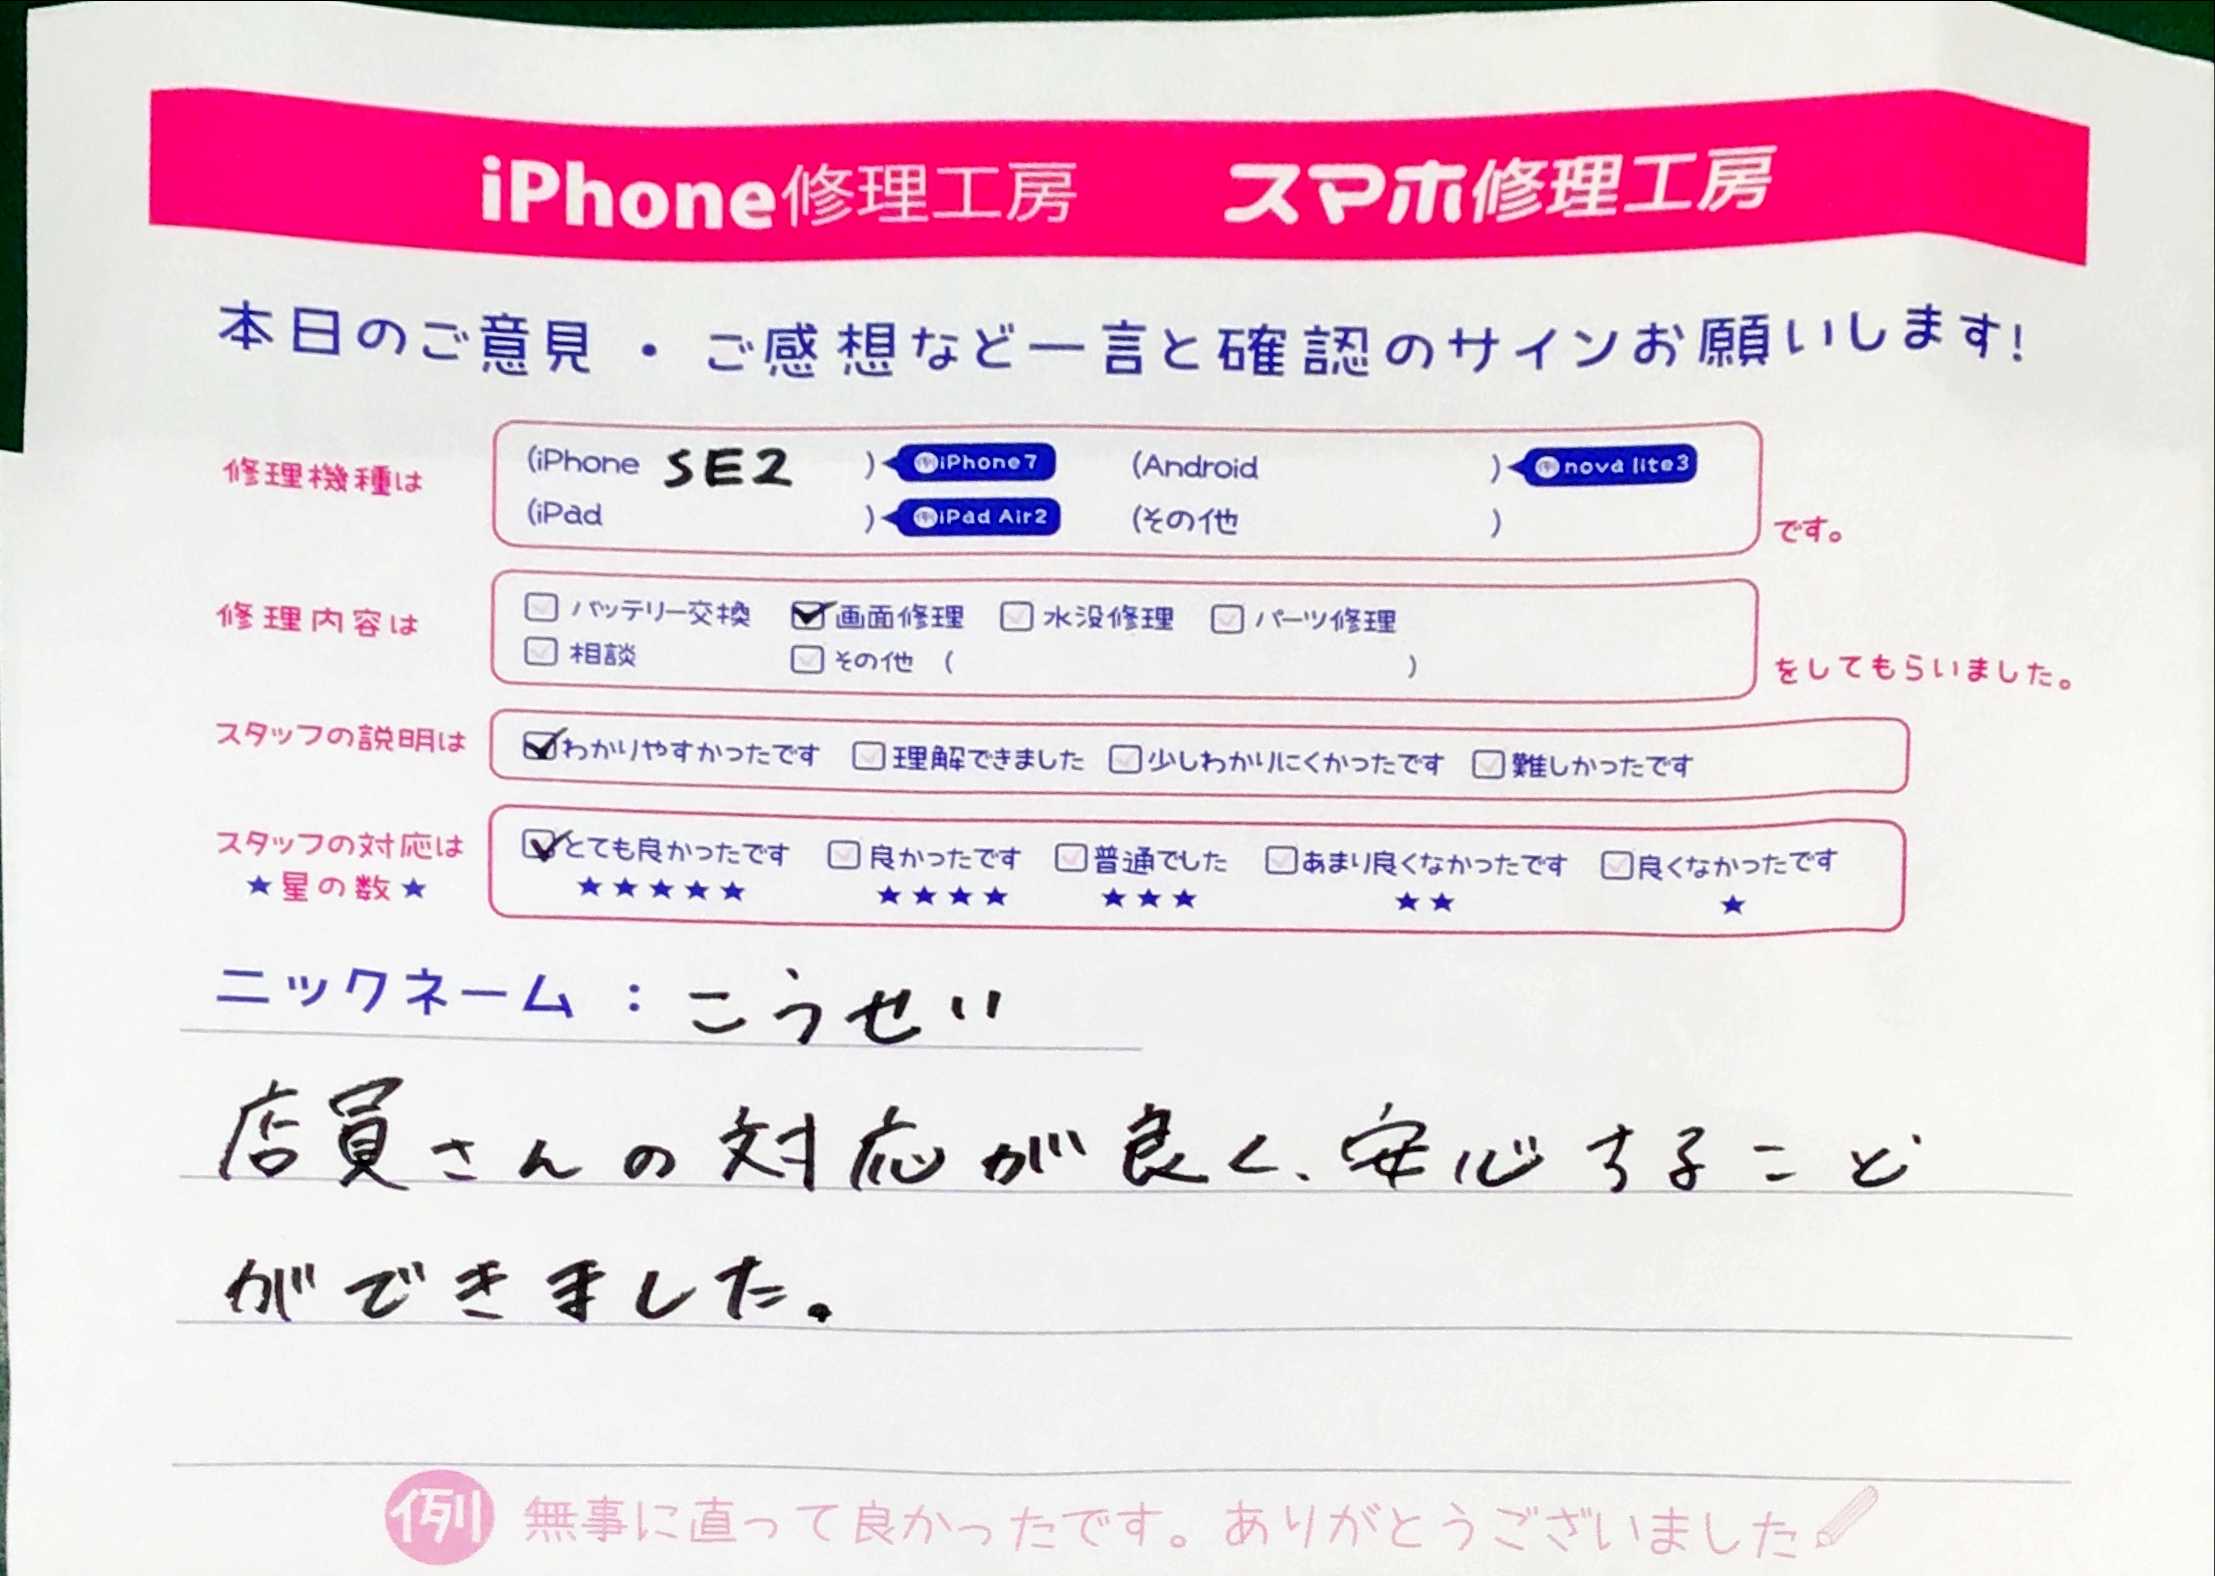 iPhone修理工房 スマホ修理工房
本日のご意見・ご感想など一言と確認のサインお願いします!
修理機種は (iPhone SE2 ) 例iPhone7 (Android ) 例nova lite3
(iPad ) 例iPad Air2 (その他 ) です。
修理内容は バッテリー交換 画面修理 水没修理 パーツ修理
相談 その他 ( ) をしてもらいました。
スタッフの説明は わかりやすかったです 理解できました 少しわかりにくかったです 難しかったです
スタッフの対応は とても良かったです 良かったです 普通でした あまり良くなかったです 良くなかったです
★星の数★ ★★★★★ ★★★★ ★★★ ★★ ★
ニックネーム : こうせい
店員さんの対応が良く、安心すること
ができました。
例 無事に直って良かったです。ありがとうございました